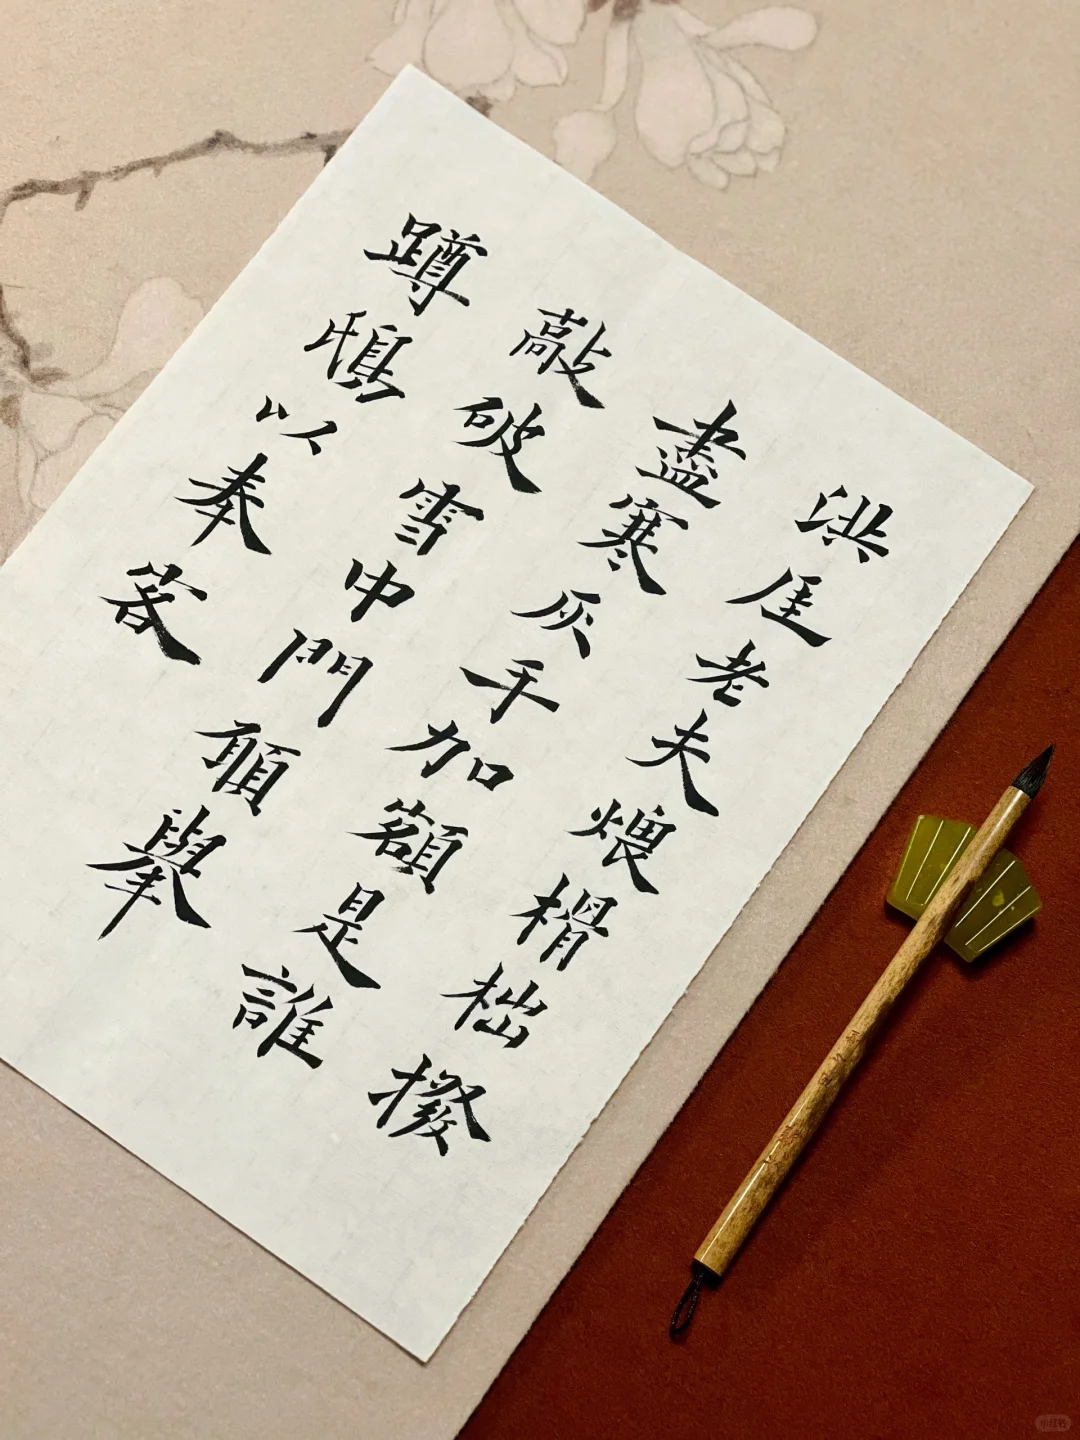 洪厓老夫煨榾柮撥
盡寒灰手加額是誰
敲破雪中門願舉
蹲鴟以奉客
小红书